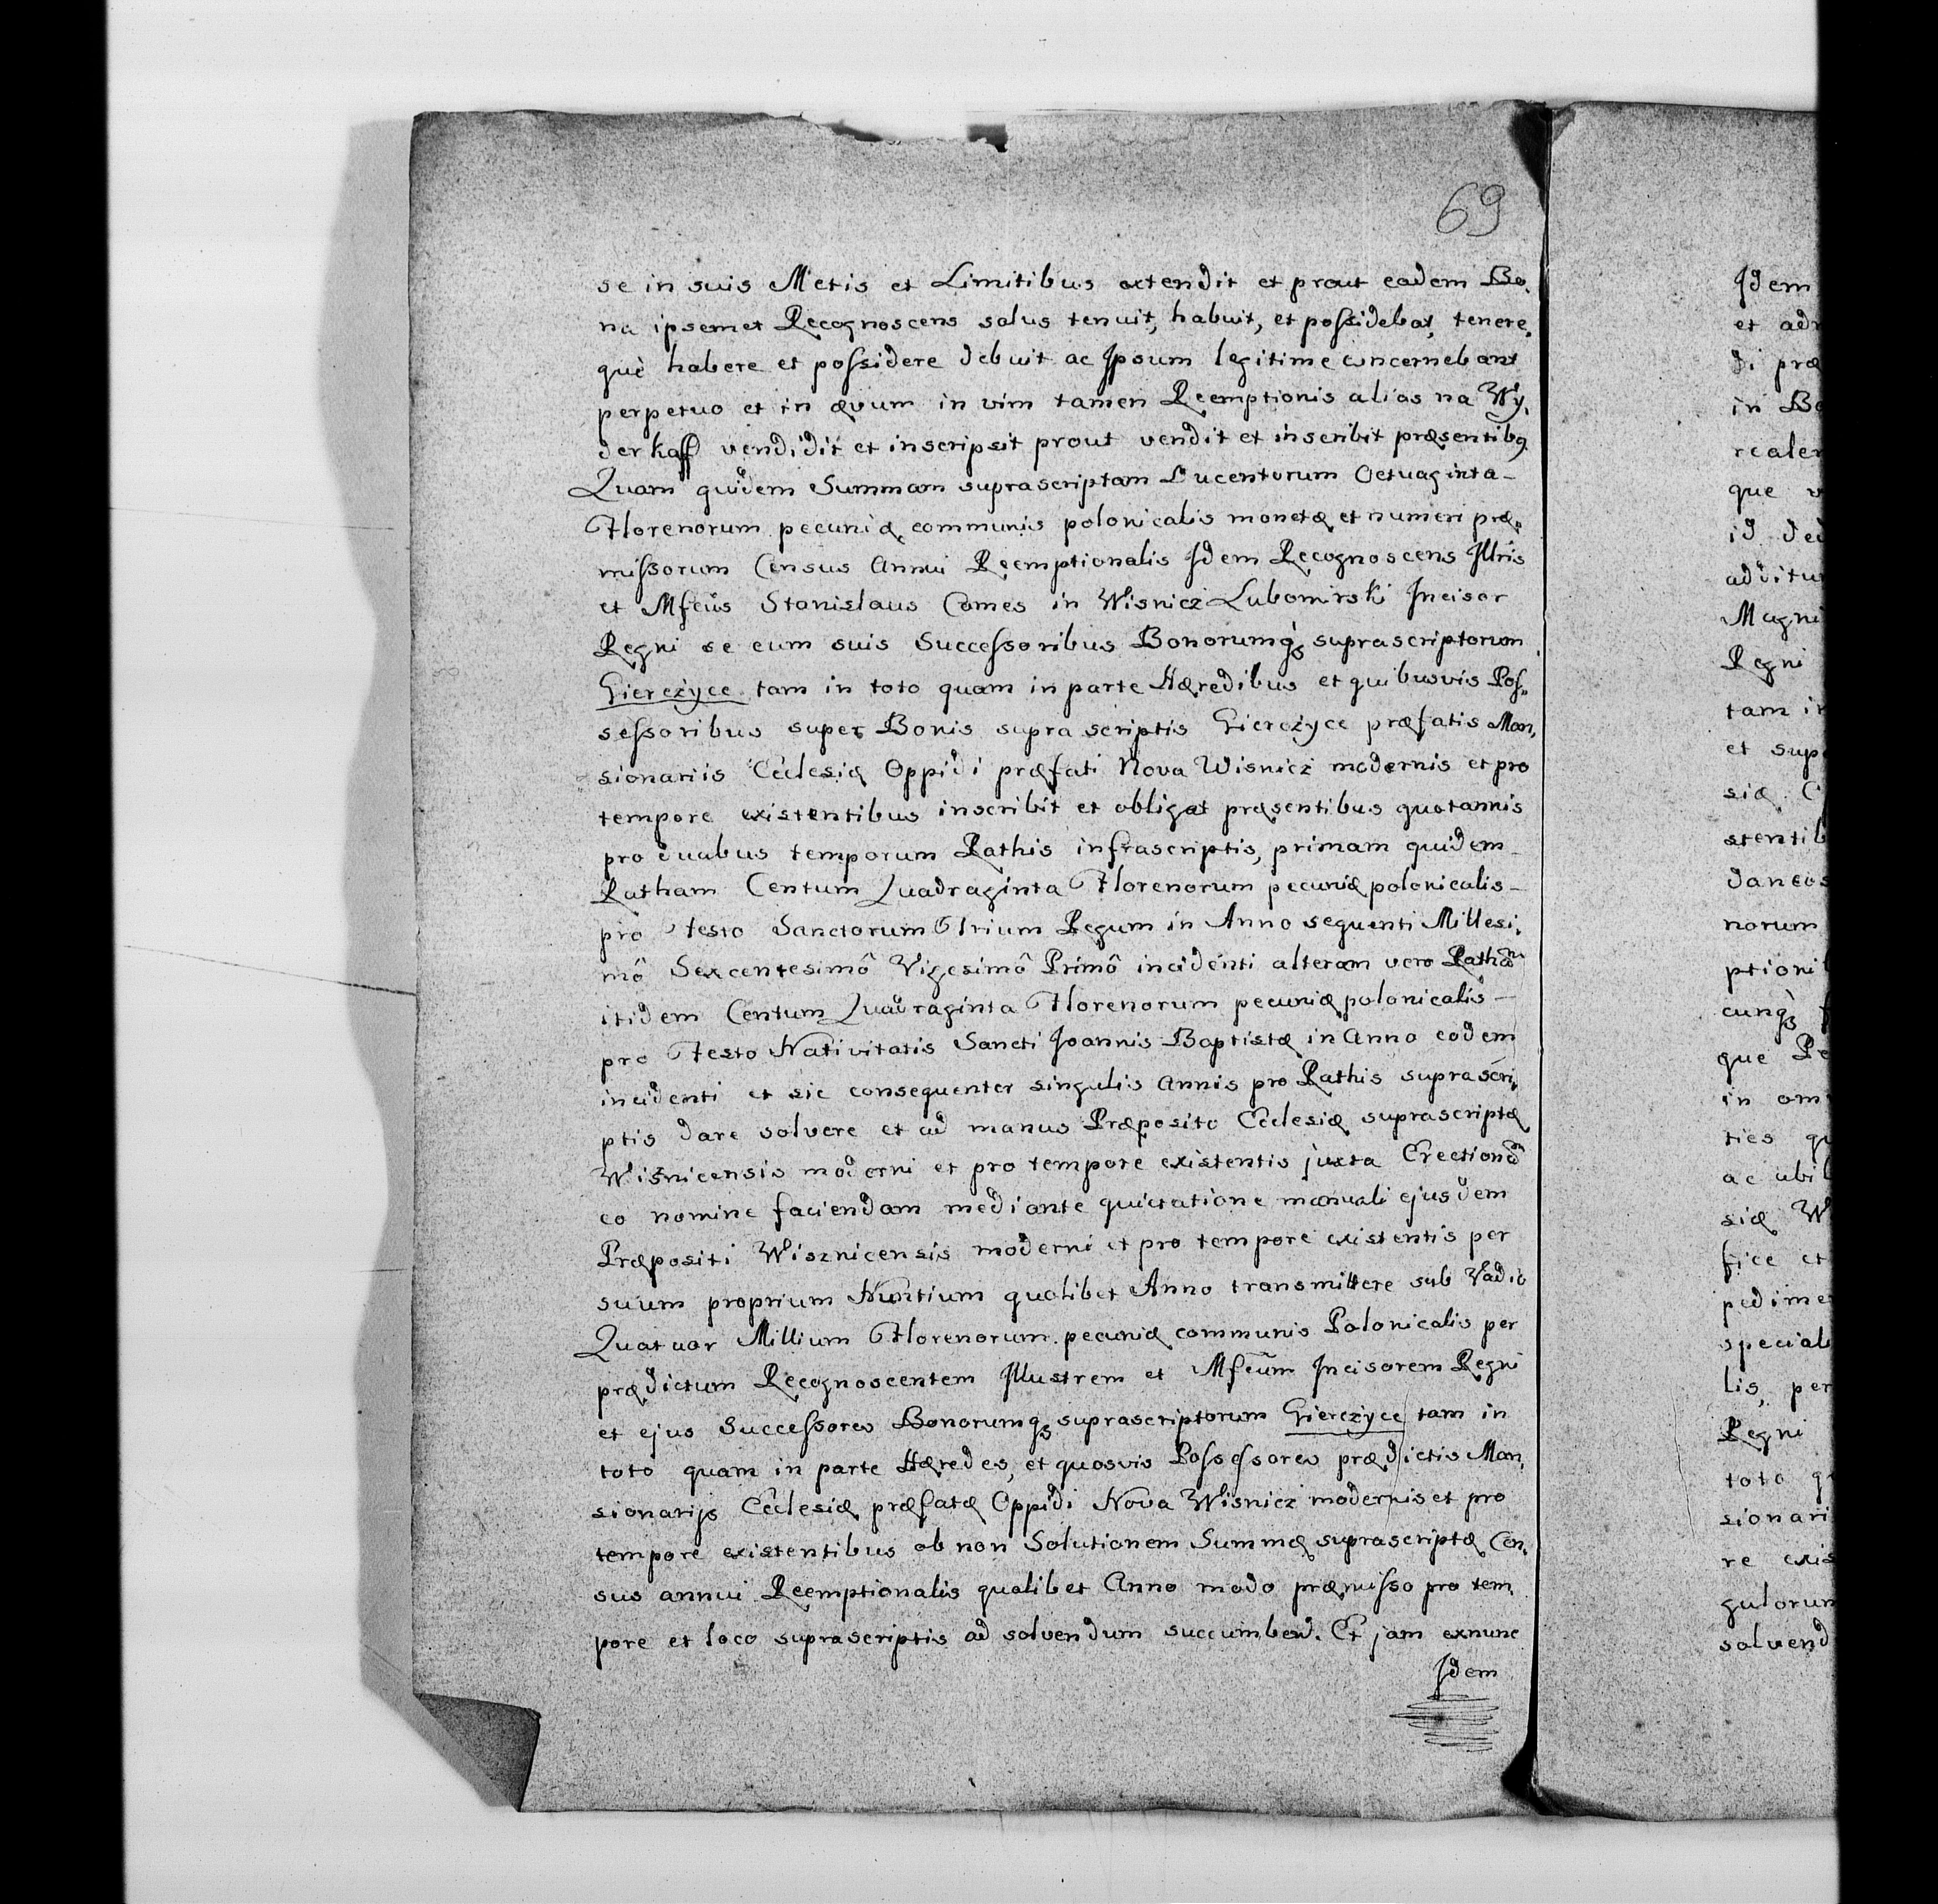 69
se in suis Metis et Limitibus extendit et prout eadem Bo,
na ipsemet Recognoscens solus tenuit, habuit, et possidebat, tenere,
què habere et possidere debuit ac Jpsum legitime concernebant
perpetuo et in ævum in vim tamen Reemptionis alias na Wy,
derkaff vendidit et inscripsit prout vendit et inscribit præsentibq
Quam quidem Summam suprascriptam Ducentorum Octuaginta
Florenorum pecuniæ communis polonicalis monetæ et numeri præ,
missorum Census Annui Reemptionalis Jdem Recognoscens Jllris
et Mfcus Stanislaus Comes in Wisnicz Lubomirski Jncisor
Regni se cum suis Successoribus Bonorumq suprascriptorum
Gierczyce tam in toto quam in parte Hæredibus et quibusvis Pos,
sessoribus super Bonis supra scriptis Gierczyce præfatis Man,
sionariis Ecclesiæ Oppidi præfati Nova Wisnicz modernis et pro
tempore existentibus inscribit et obligat præsentibus quotannis
pro duabus temporum Rathis infrascriptis, primam quidem
Ratham Centum Quadraginta Florenorum pecuniæ polonicalis
pro Festo Sanctorum Trium Regum in Anno sequenti Millesi,
mô Sexcentesimô Vigesimô Primô incidenti alteram vero Rathã
itidem Centum Quadraginta Florenorum pecuniæ polonicalis
pro Festo Nativitatis Sancti Joannis Baptistæ in Anno eodem
incidenti et sic consequenter singulis Annis pro Rathis suprascri,
ptis dare solvere et ad manus Præposito Ecclesiæ suprascriptæ
Wisnicensis moderni et pro tempore existentis juxta Erectionē
eo nomine faciendam mediante quietatione manuali ejusdem
Præpositi Wisznicensis moderni et pro tempore existentis per
suum proprium Nuntium quolibet Anno transmittere sub Vadio
Quatuor Millium Florenorum pecuniæ communis Polonicalis per
prædictum Recognoscentem Jllustrem et Mfcum Jncisorem Regni
et ejus Successores Bonorumq suprascriptorum Gierczyce tam in
toto quam in parte Hæredes, et quosvis Possessores prædictis Man,
sionarijs Ecclesiæ præfatæ Oppidi Nova Wisnicz modernis et pro
tempore existentibus ob non Solutionem Summæ suprascriptæ Cen,
sus annui Reemptionalis qualibet Anno modo præmisso pro tem,
pore et loco suprascriptis ad solvendum succumbend. Et jam exnunc
Jdem
Jdem
et adm
di præ
in Bo
realem
que v
id ded
aditu
Magni
Regni
tam in
et sup
siæ C
stentib
daneos
norum
ptioni
cunq f
que Po
in om
ties qu
ac ubi
siæ W
fice et
pedime
speciali
lis, per
Regni
toto q
sionari
re exis
gulorum
solvend